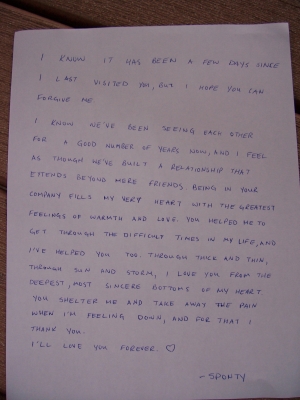 I KNOW IT HAS BEEN A FEW DAYS SINCE
I LAST VISITED YOU, BUT I HOPE YOU CAN
FORGIVE ME
I KNOW WE'VE BEEN SEEING EACH OTHER
FOR A GOOD NUMBER OF YEARS NOW, AND I FEEL
AS THOUGH WE'VE BUILT A RELATIONSHIP THAT
EXTENDS BEYOND MERE FRIENDS. BEING IN YOUR
COMPANY FILLS MY VERY HEART WITH THE GREATEST
FEELINGS OF WARMTH AND LOVE. YOU HELPED ME TO
GET THROUGH THE DIFFICULT TIMES IN MY LIFE, AND
I'VE HELPED YOU TOO. THROUGH THICK AND THIN,
THROUGH SUN AND STORM, I LOVE YOU FROM THE
DEEPEST, MOST SINCERE BOTTOMS OF MY HEART
YOU SHELTER ME AND TAKE AWAY THE PAIN
WHEN I'M FEELING DOWN, AND FOR THAT I
THANK YOU.
I'LL LOVE YOU FOREVER. ♡
- SPONTY